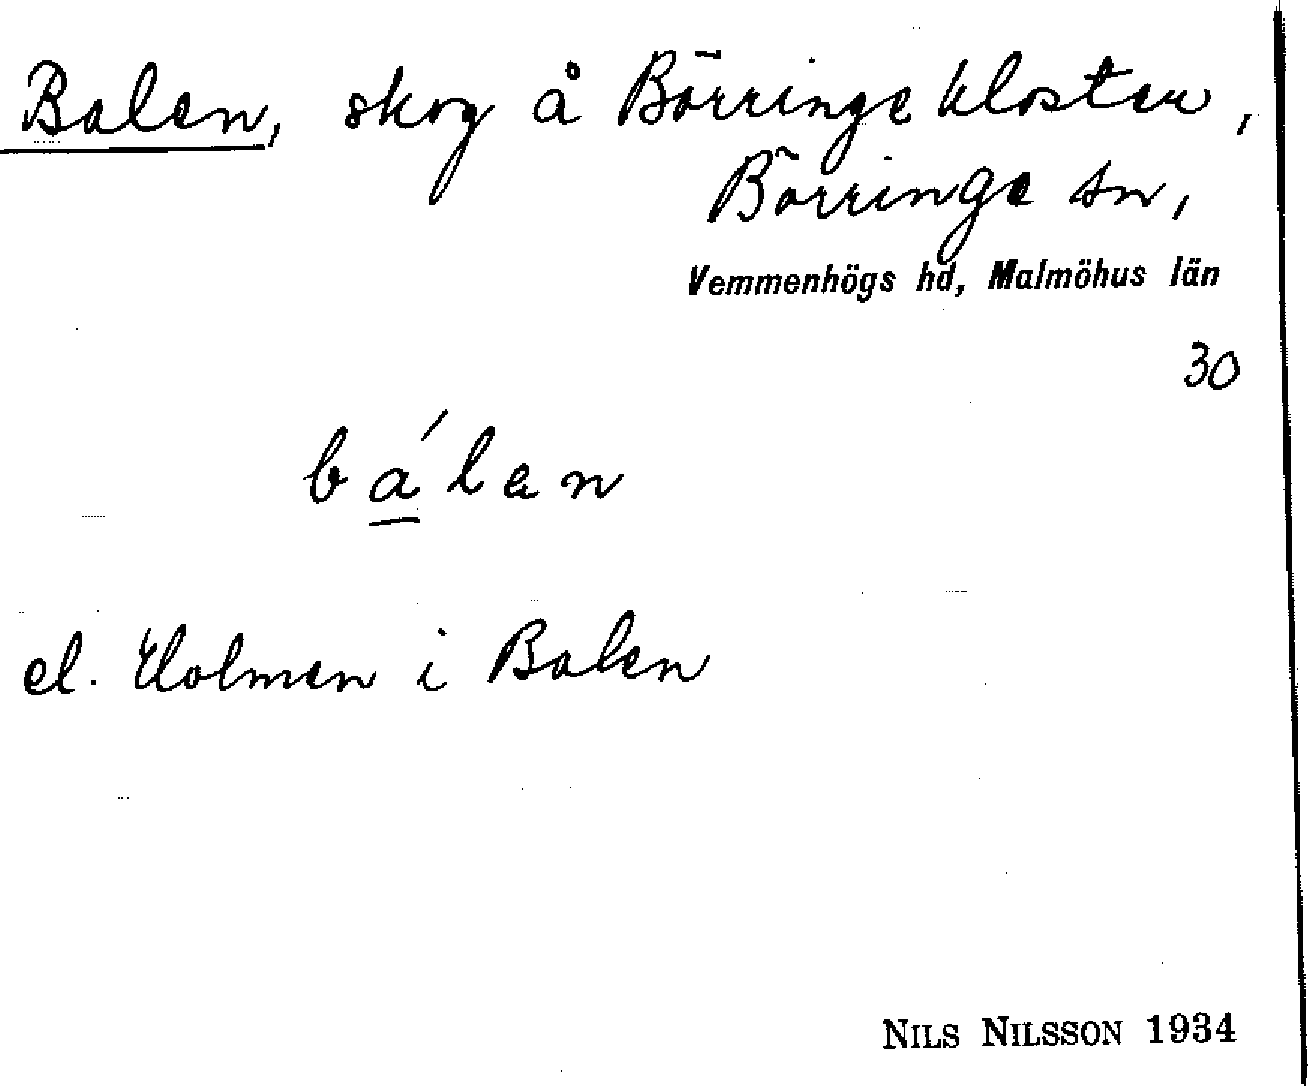 Balen, skog å Börringekloster,
Börringe sn,
Vemmenhögs hd, Malmöhus län
30
bá̱len
el. Holmen i Balen
NILS NILSSON 1934